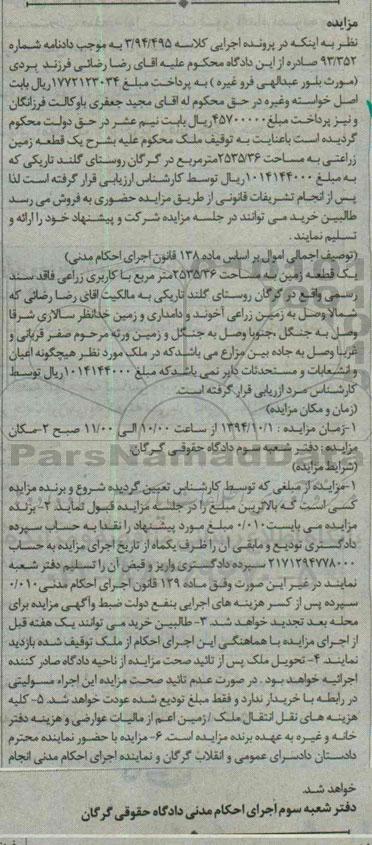 مزایده
نظر به اینکه در پرونده اجرایی کلاسه ۳/۹۴/۴۹۵ به موجب دادنامه شماره
۹۳/۳۵۲ صادره از این دادگاه محکوم علیه اقای رضا رضائی فرزند یزدی
(مورث بلور عبدالهی فرو غیره ) به پرداخت مبلغ ۱۷۷۲۱۲۳۰۳۴ریال بابت
اصل خواسته وغیره در حق محکوم له اقای مجید جعفری باوکالت فرزانگان
و نیز پرداخت مبلغ۴۵۷۰۰۰۰۰ریال بابت نیم عشر در حق دولت محکوم
گردیده است باعنایت به توقیف ملک محکوم علیه بشرح یک قطعه زمین
زراعتی به مساحت ۲۵۳۵/۳۶مترمربع در گرگان روستای گلند تاریکی که
به مبلغ ۱۰۱۴۱۴۴۰۰۰ریال توسط کارشناس ارزیابی قرار گرفته است لذا
پس از انجام تشریفات قانونی از طریق مزایده حضوری به فروش می رسد
طالبین خرید می توانند در جلسه مزایده شرکت و پیشنهاد خود را ارائه و
تسلیم نمایند .
(توصیف اجمالی اموال بر اساس ماده ۱۳۸ قانون اجرای احکام مدنی)
یک قطعه زمین به مساحت ۲۵۳۵/۳۶متر مربع با کاربری زراعی فاقد سند
رسمی واقع در گرگان روستای گلند تاریکی به مالکیت اقای رضا رضائی که
شمالا وصل به زمین زراعی آخوند و دامداری و زمین خدانظر سالاری شرقا
وصل به جنگل ،جنوبا وصل به جنگل و زمین ورثه مرحوم صفر قربانی و
غربا وصل به جاده بین مزارع می باشدکه در ملک مورد نظر هیچگونه اعیان
و انشعابات و مستحدثات دایر نمی باشدکه مبلغ ۱۰۱۴۱۴۴۰۰۰ریال توسط
کارشناس مرد ارزیابی قرار گرفته است.
(زمان و مکان مزایده)
۱-زمان مزایده : ۱۳۹۴/۱۰/۱ از ساعت ۱۰/۰۰ الی ۱۱/۰۰ صبح ۲-مکان
مزایده : دفتر شعبه سوم دادگاه حقوقی گرگان.
ParsNamadData
(شرایط مزایده)
۱-مزایده از مبلغی که توسط کارشناس تعیین گردیده شروع و برنده مزایده
کسی است که بالاترین مبلغ را در جلسه مزایده قبول نماید. ۲- برنده
مزایده می بایست۰/۰۱۰ مبلغ مورد پیشنهاد را نقدا به حساب سپرده
دادگستری تودیع و مابقی آن را ظرف یکماه از تاریخ اجرای مزایده به حساب
۲۱۷۱۲۹۴۷۷۸۰۰۰ سپرده دادگستری واریز و قبض آن را تسلیم دفتر شعبه
نمایند در غیر این صورت وفق ماده ۱۲۹ قانون اجرای احکام مدنی ۰/۰۱۰
سپرده پس از کسر هزینه های اجرایی بنفع دولت ضبط وآگهی مزایده برای
محله بعد تجدید خواهد شد. ۳- طالبین خرید می توانند یک هفته قبل
از اجرای مزایده با هماهنگی این اجرای احکام از ملک توقیف شده بازدید
نمایند. ۴- تحویل ملک پس از تائید صحت مزایده از ناحیه دادگاه صادر کننده
اجرائیه خواهد بود . در صورت عدم تائید صحت مزایده این اجراء مسولیتی
در رابطه با خریدار ندارد و فقط مبلغ تودیع شده عودت خواهد شد. ۵- کلیه
هزینه های نقل انتقال ملک /زمین اعم از مالیات عوارضی و هزینه دفتر
خانه و غیره به عهده برنده مزایده است. ۶- مزایده با حضور نماینده محترم
دادستان دادسرای عمومی و انقلاب گرگان و نماینده اجرای احکام مدنی انجام
خواهد شد.
دفتر شعبه سوم اجرای احکام مدنی دادگاه حقوقی گرگان